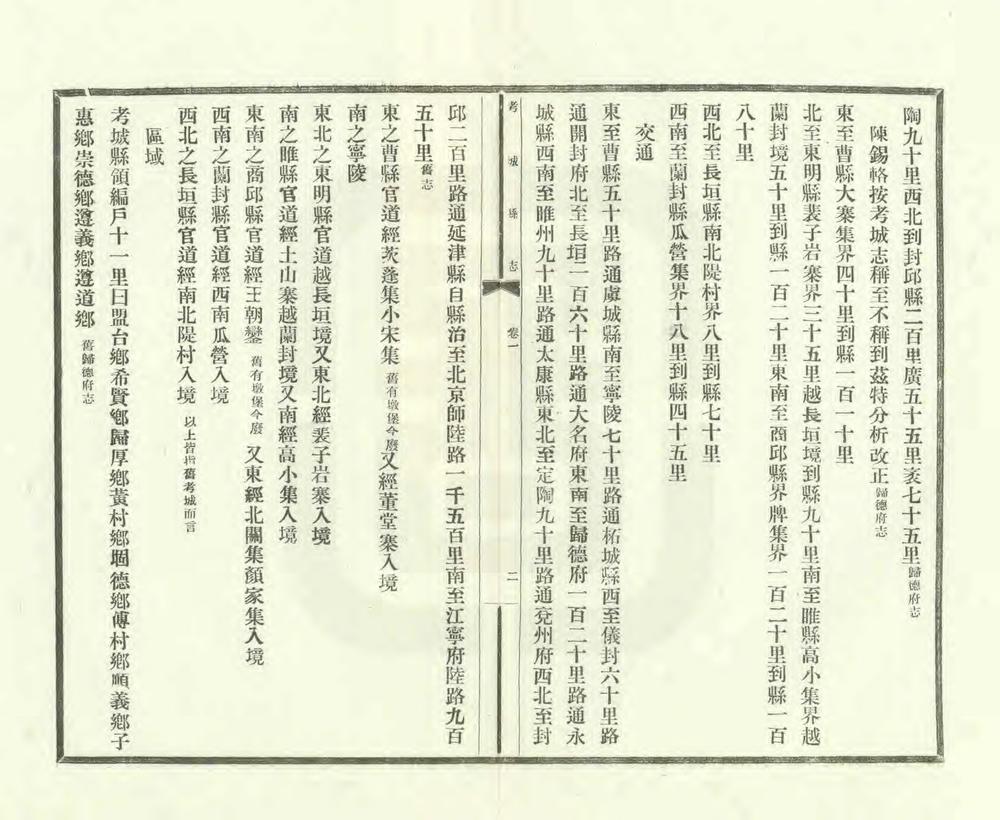 陶九十里西北到封邱縣二百里廣五十五里袤七十五里歸德府志
陳錫輅按考城志稱至不稱到茲特分析改正歸德府志
東至曹縣大寨集界四十里到縣一百一十里
北至東明縣裴子岩寨界三十五里越長垣境到縣九十里南至睢縣高小集界越
蘭封境五十里到縣一百二十里東南至商邱縣界牌集界一百二十里到縣一百
八十里
西北至長垣縣南北隄村界八里到縣七十里
西南至蘭封縣瓜營集界十八里到縣四十五里
交通
東至曹縣五十里路通虞城縣南至寧陵七十里路通柘城縣西至儀封六十里路
通開封府北至長垣一百六十里路通大名府東南至歸德府一百二十里路通永
城縣西南至睢州九十里路通太康縣東北至定陶九十里路通兗州府西北至封
考城縣志
卷一
二
邱二百里路通延津縣自縣治至北京師陸路一千五百里南至江寧府陸路九百
五十里舊志
東之曹縣官道經茨蓬集小宋集舊有墩堡今廢又經董堂寨入境
南之寧陵
東北之東明縣官道越長垣境又東北經裴子岩寨入境
南之睢縣官道經土山寨越蘭封境又南經高小集入境
東南之商邱縣官道經王朝鑾舊有墩堡今廢又東經北關集顏家集入境
西南之蘭封縣官道經西南瓜營入境
西北之長垣縣官道經南北隄村入境以上皆指舊考城而言
區域
考城縣領編戶十一里曰盟台鄉希賢鄉歸厚鄉黃村鄉固德鄉傅村鄉順義鄉子
惠鄉崇德鄉遵義鄉遵道鄉舊歸德府志